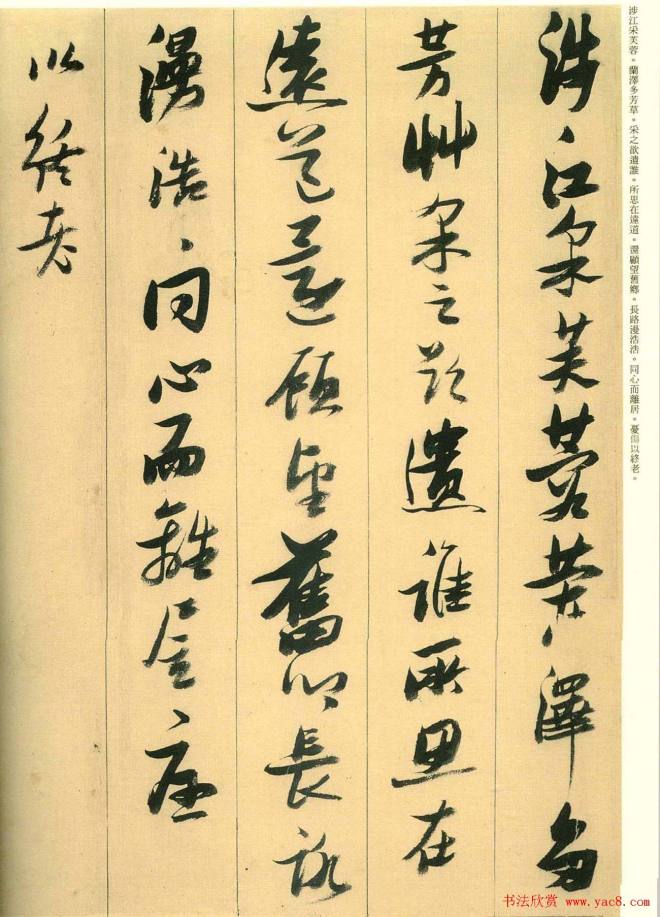 涉江采芙蓉。蘭澤多芳草。采之欲遺誰。所思在遠道。還顧望舊鄉。長路漫浩浩。同心而離居。憂傷以終老。
涉江采芙蓉蘭澤多
芳艸采之欲遺誰所思在
遠道還顧望舊鄉長路
漫浩〻同心而離居憂
以終老
书法欣赏 www.yac8.com